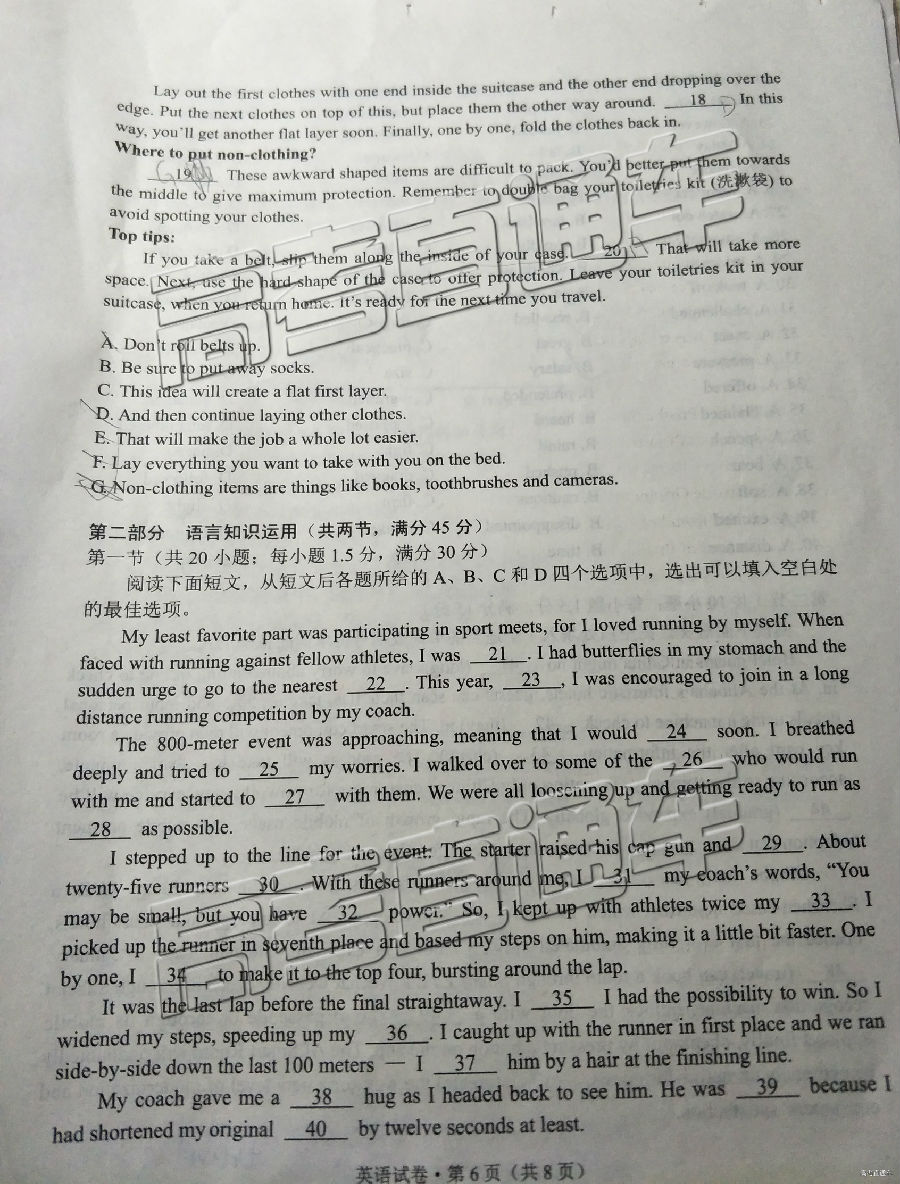 Lay out the first clothes with one end inside the suitcase and the other end dropping over the
edge. Put the next clothes on top of this, but place them the other way around. 18 In this
way, you'll get another flat layer soon. Finally, one by one, fold the clothes back in.
Where to put non-clothing?
19 These awkward shaped items are difficult to pack. You'd better put them towards
the middle to give maximum protection. Remember to double bag your toiletries kit (洗漱袋) to
avoid spotting your clothes.
Top tips:
If you take a belt, slip them along the inside of your case. 20 That will take more
space. Next, use the hard shape of the case to offer protection. Leave your toiletries kit in your
suitcase, when you return home. It's ready for the next time you travel.
A. Don't roll belts up.
B. Be sure to put away socks.
C. This idea will create a flat first layer.
D. And then continue laying other clothes.
E. That will make the job a whole lot easier.
F. Lay everything you want to take with you on the bed.
G. Non-clothing items are things like books, toothbrushes and cameras.
第二部分 语言知识运用（共两节，满分 45 分）
第一节（共 20 小题；每小题 1.5 分，满分 30 分）
阅读下面短文，从短文后各题所给的 A、B、C 和 D 四个选项中，选出可以填入空白处
的最佳选项。
My least favorite part was participating in sport meets, for I loved running by myself. When
faced with running against fellow athletes, I was 21 . I had butterflies in my stomach and the
sudden urge to go to the nearest 22 . This year, 23 , I was encouraged to join in a long
distance running competition by my coach.
The 800-meter event was approaching, meaning that I would 24 soon. I breathed
deeply and tried to 25 my worries. I walked over to some of the 26 who would run
with me and started to 27 with them. We were all loosening up and getting ready to run as
28 as possible.
I stepped up to the line for the event. The starter raised his cap gun and 29 . About
twenty-five runners 30 . With these runners around me, I 31 my coach's words, “You
may be small, but you have 32 power.” So, I kept up with athletes twice my 33 . I
picked up the runner in seventh place and based my steps on him, making it a little bit faster. One
by one, I 34 to make it to the top four, bursting around the lap.
It was the last lap before the final straightaway. I 35 I had the possibility to win. So I
widened my steps, speeding up my 36 . I caught up with the runner in first place and we ran
side-by-side down the last 100 meters — I 37 him by a hair at the finishing line.
My coach gave me a 38 hug as I headed back to see him. He was 39 because I
had shortened my original 40 by twelve seconds at least.
英语试卷·第 6 页（共 8 页）
高考直通车
高考直通车